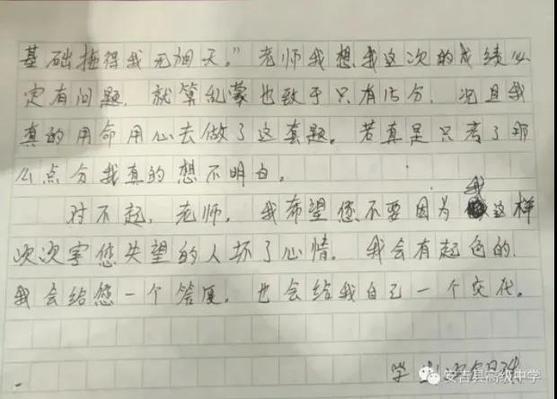 基础拖得我无怨天。”老师我想,我这次的成绩必
定有问题,就算乱蒙也致于只有15分,况且我
真的用命用心去做了这套题。若真是只考了那
么点分我真的想不明白。
对不起,老师。我希望您不要因为我这样
次次字您失望的人坏了心情。我会有起色的,
我会给您一个答复,也会给我自己一个交代。
学生
安吉县高级中学